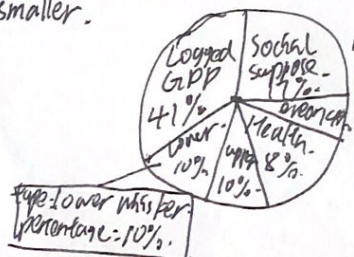 smaller.
Logged
GDP
41%.
Social
suppose.
17%.
Health.
8%.
Lower.
10%.
upper
10%.
type: lower whisker.
percentage = 10%.